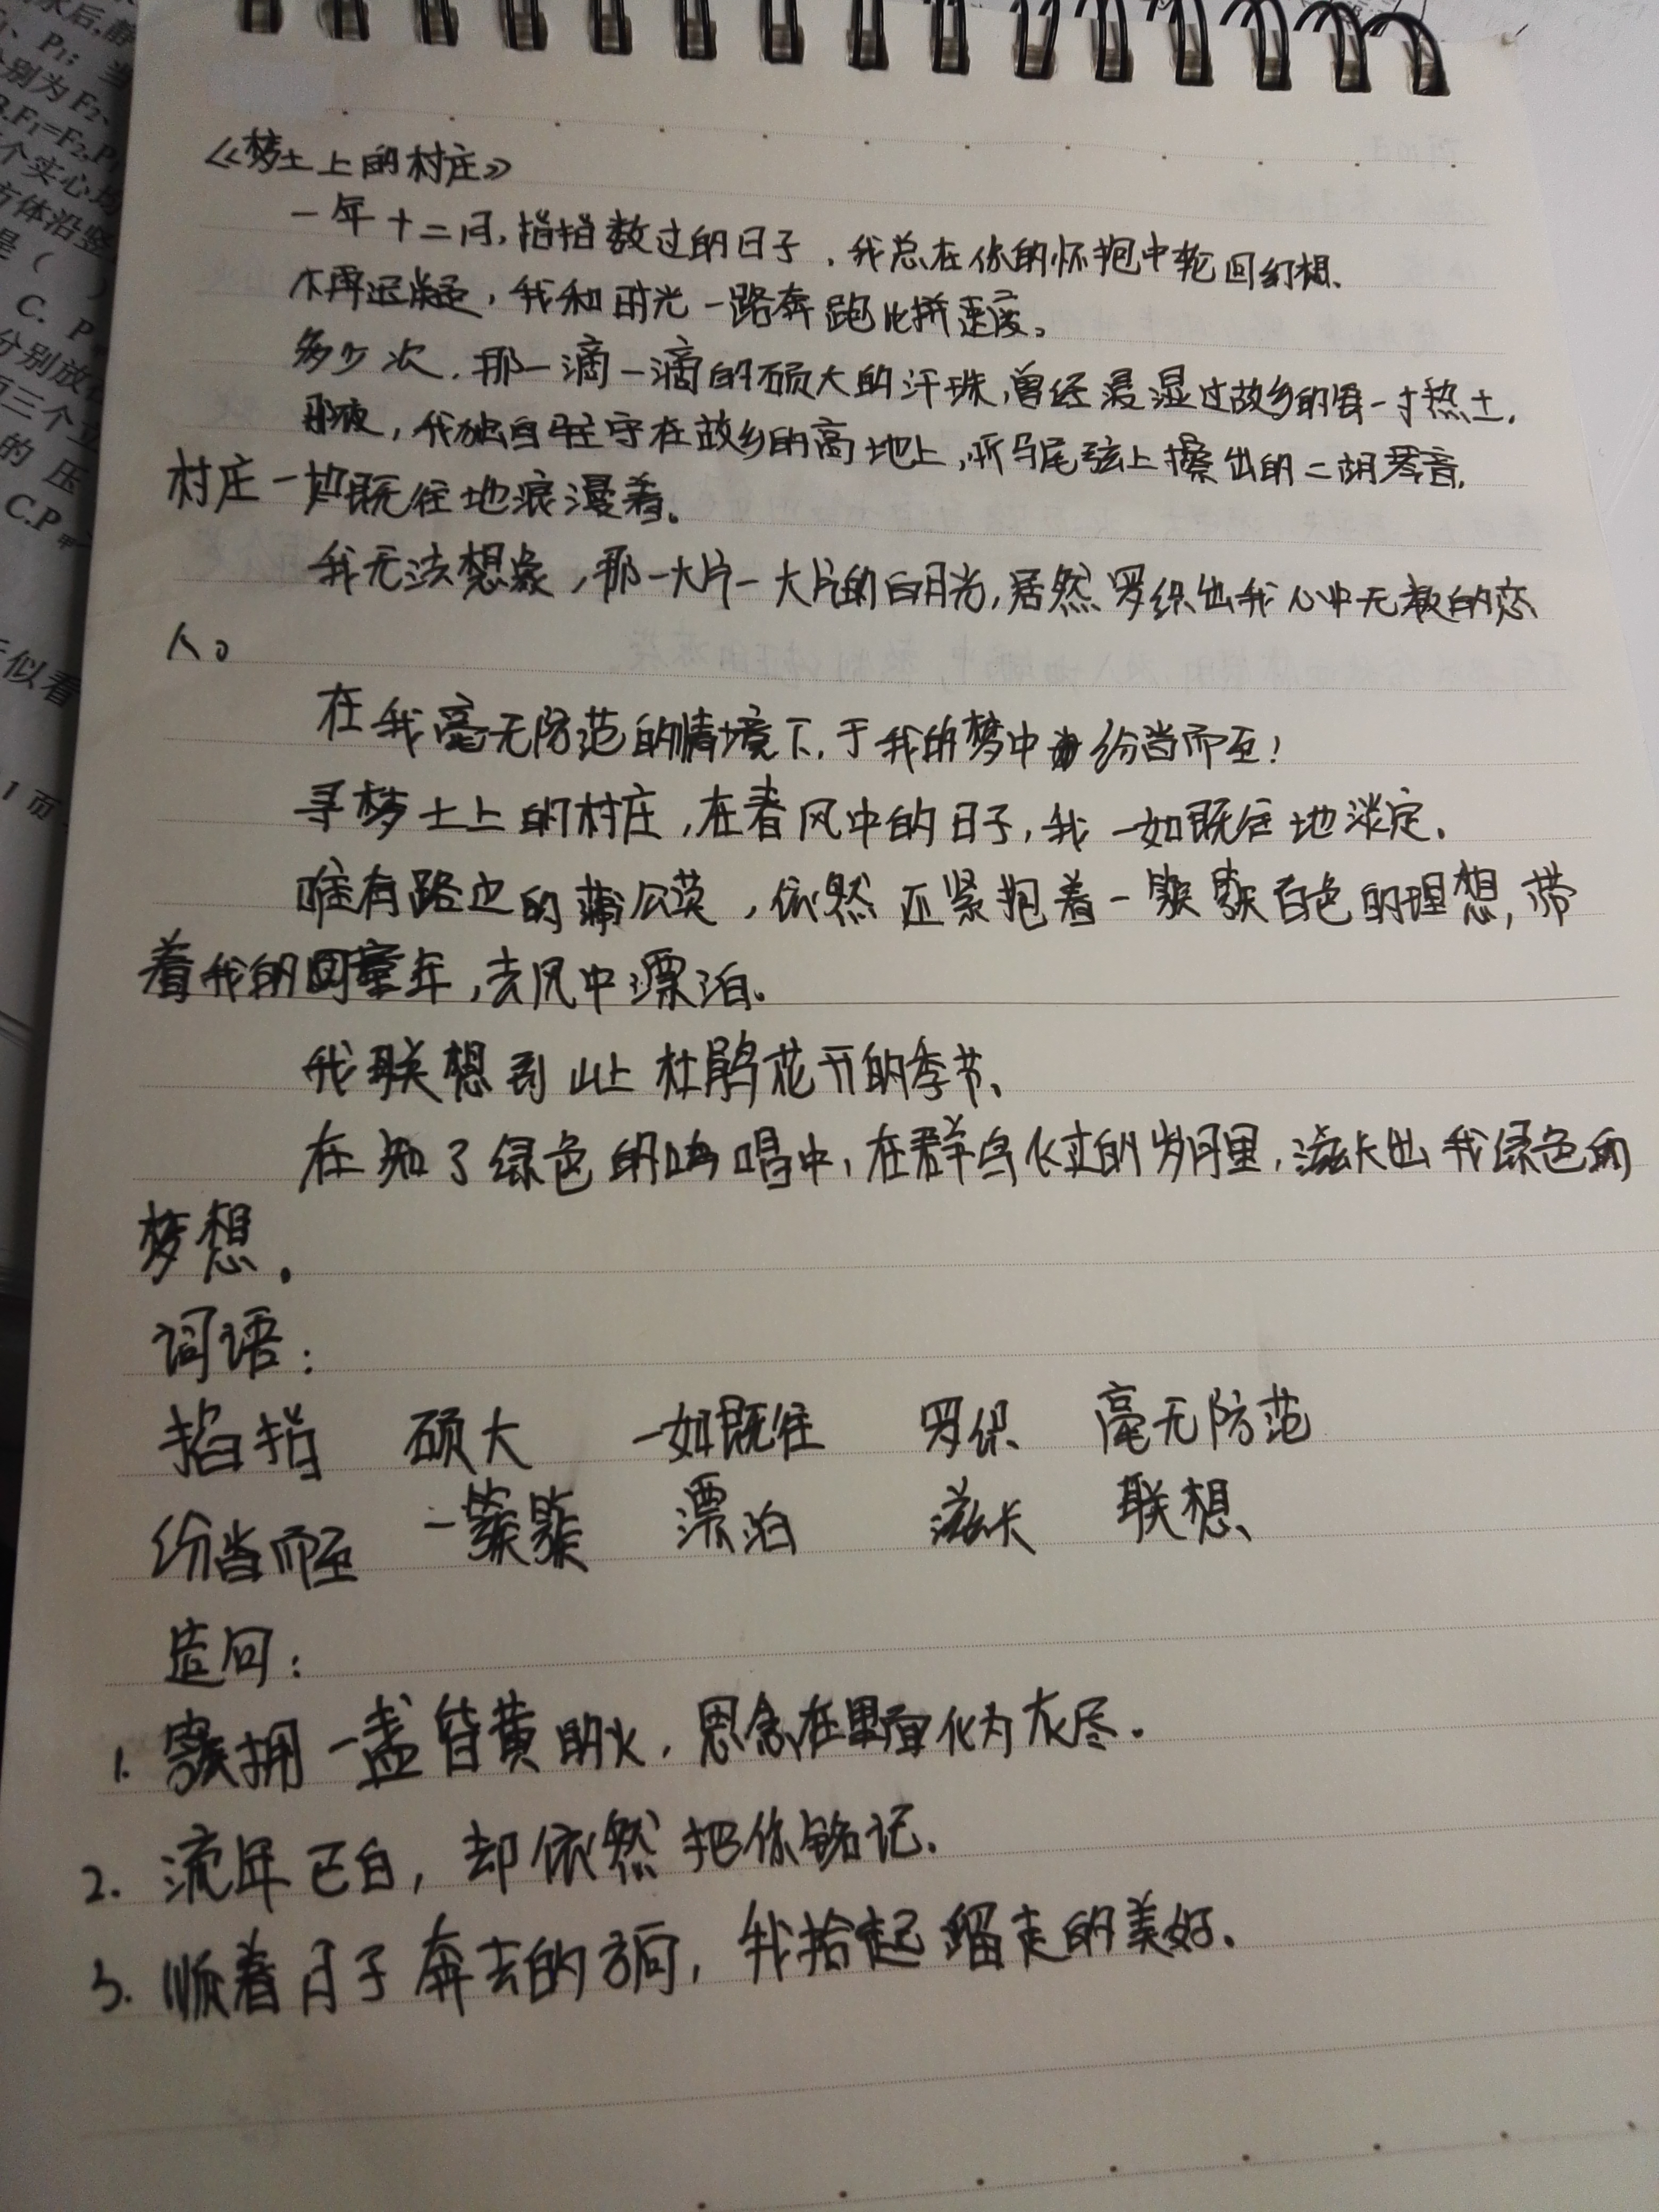 水后,静
、P₁;当
别为F₂、
B.F₁=F₂,P
个实心均
方体沿竖
是(    )
C. P
分别放在
三个立
的 压
C.P甲
似看
1 页
《梦土上的村庄》
一年十二月,掐指数过的日子,我总在你的怀抱中轮回幻想.
不再迟疑,我和时光一路奔跑比拼速度。
多少次,那一滴一滴的硕大的汗珠,曾经浸湿过故乡的每一寸热土.
那夜,我独自驻守在故乡的高地上,听马尾弦上擦出的二胡琴音.
村庄一如既往地浪漫着。
我无法想象,那一大片一大片的白月光,居然罗织出我心中无数的恋
人。
在我毫无防范的情境下,于我的梦中纷沓而至!
寻梦土上的村庄,在春风中的日子,我一如既往地淡定.
唯有路边的蒲公英,依然还紧抱着一簇簇白色的理想,带
着我的童年,去风中漂泊。
我联想到山上杜鹃花开的季节、
在知了绿色的鸣唱中,在群鸟飞过的岁月里,滋长出我绿色的
梦想.
词语:
掐指 硕大 一如既往 罗织 毫无防范
纷沓而至 一簇簇 漂泊 滋长 联想
造句:
1. 簇拥一盏昏黄的火,思念在里面化为灰尽.
2. 流年已白,却依然把你铭记.
3. 顺着日子奔去的方向,我拾起溜走的美好.